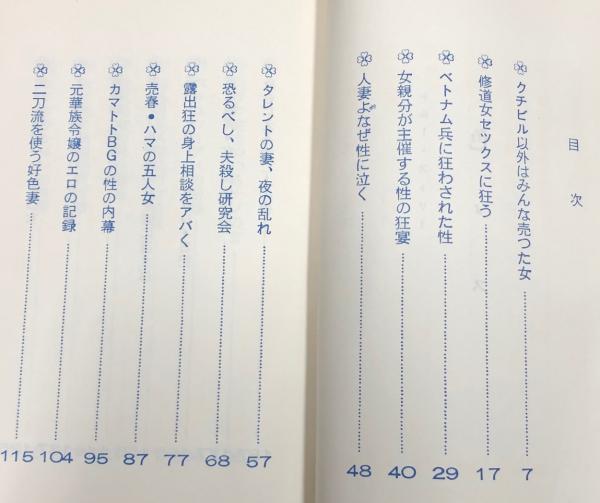 目次
クチビル以外はみんな売つた女……7
修道女セックスに狂う……17
ベトナム兵に狂わされた性……29
女親分が主催する性の狂宴……40
人妻よなぜ性に泣く……48
タレントの妻、夜の乱れ……57
恐るべし、夫殺し研究会……68
露出狂の身上相談をアバく……77
売春・ハマの五人女……87
カマトトBGの性の内幕……95
元華族令嬢のエロの記録……104
二刀流を使う好色妻……115